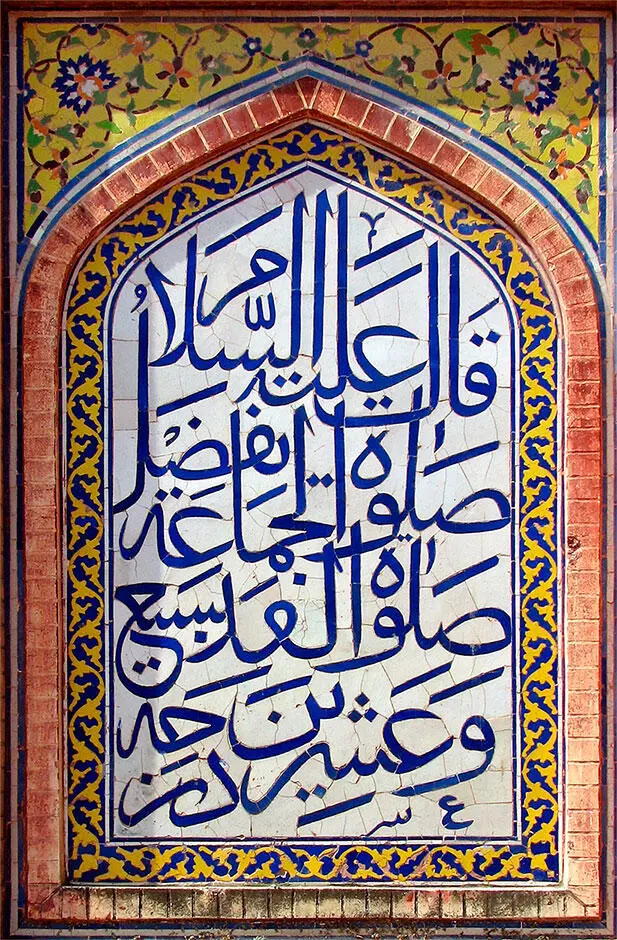 قال عليه السلام
صلوه الجماعه تفضل
صلوة الفذ بسبع
وعشرين درجه